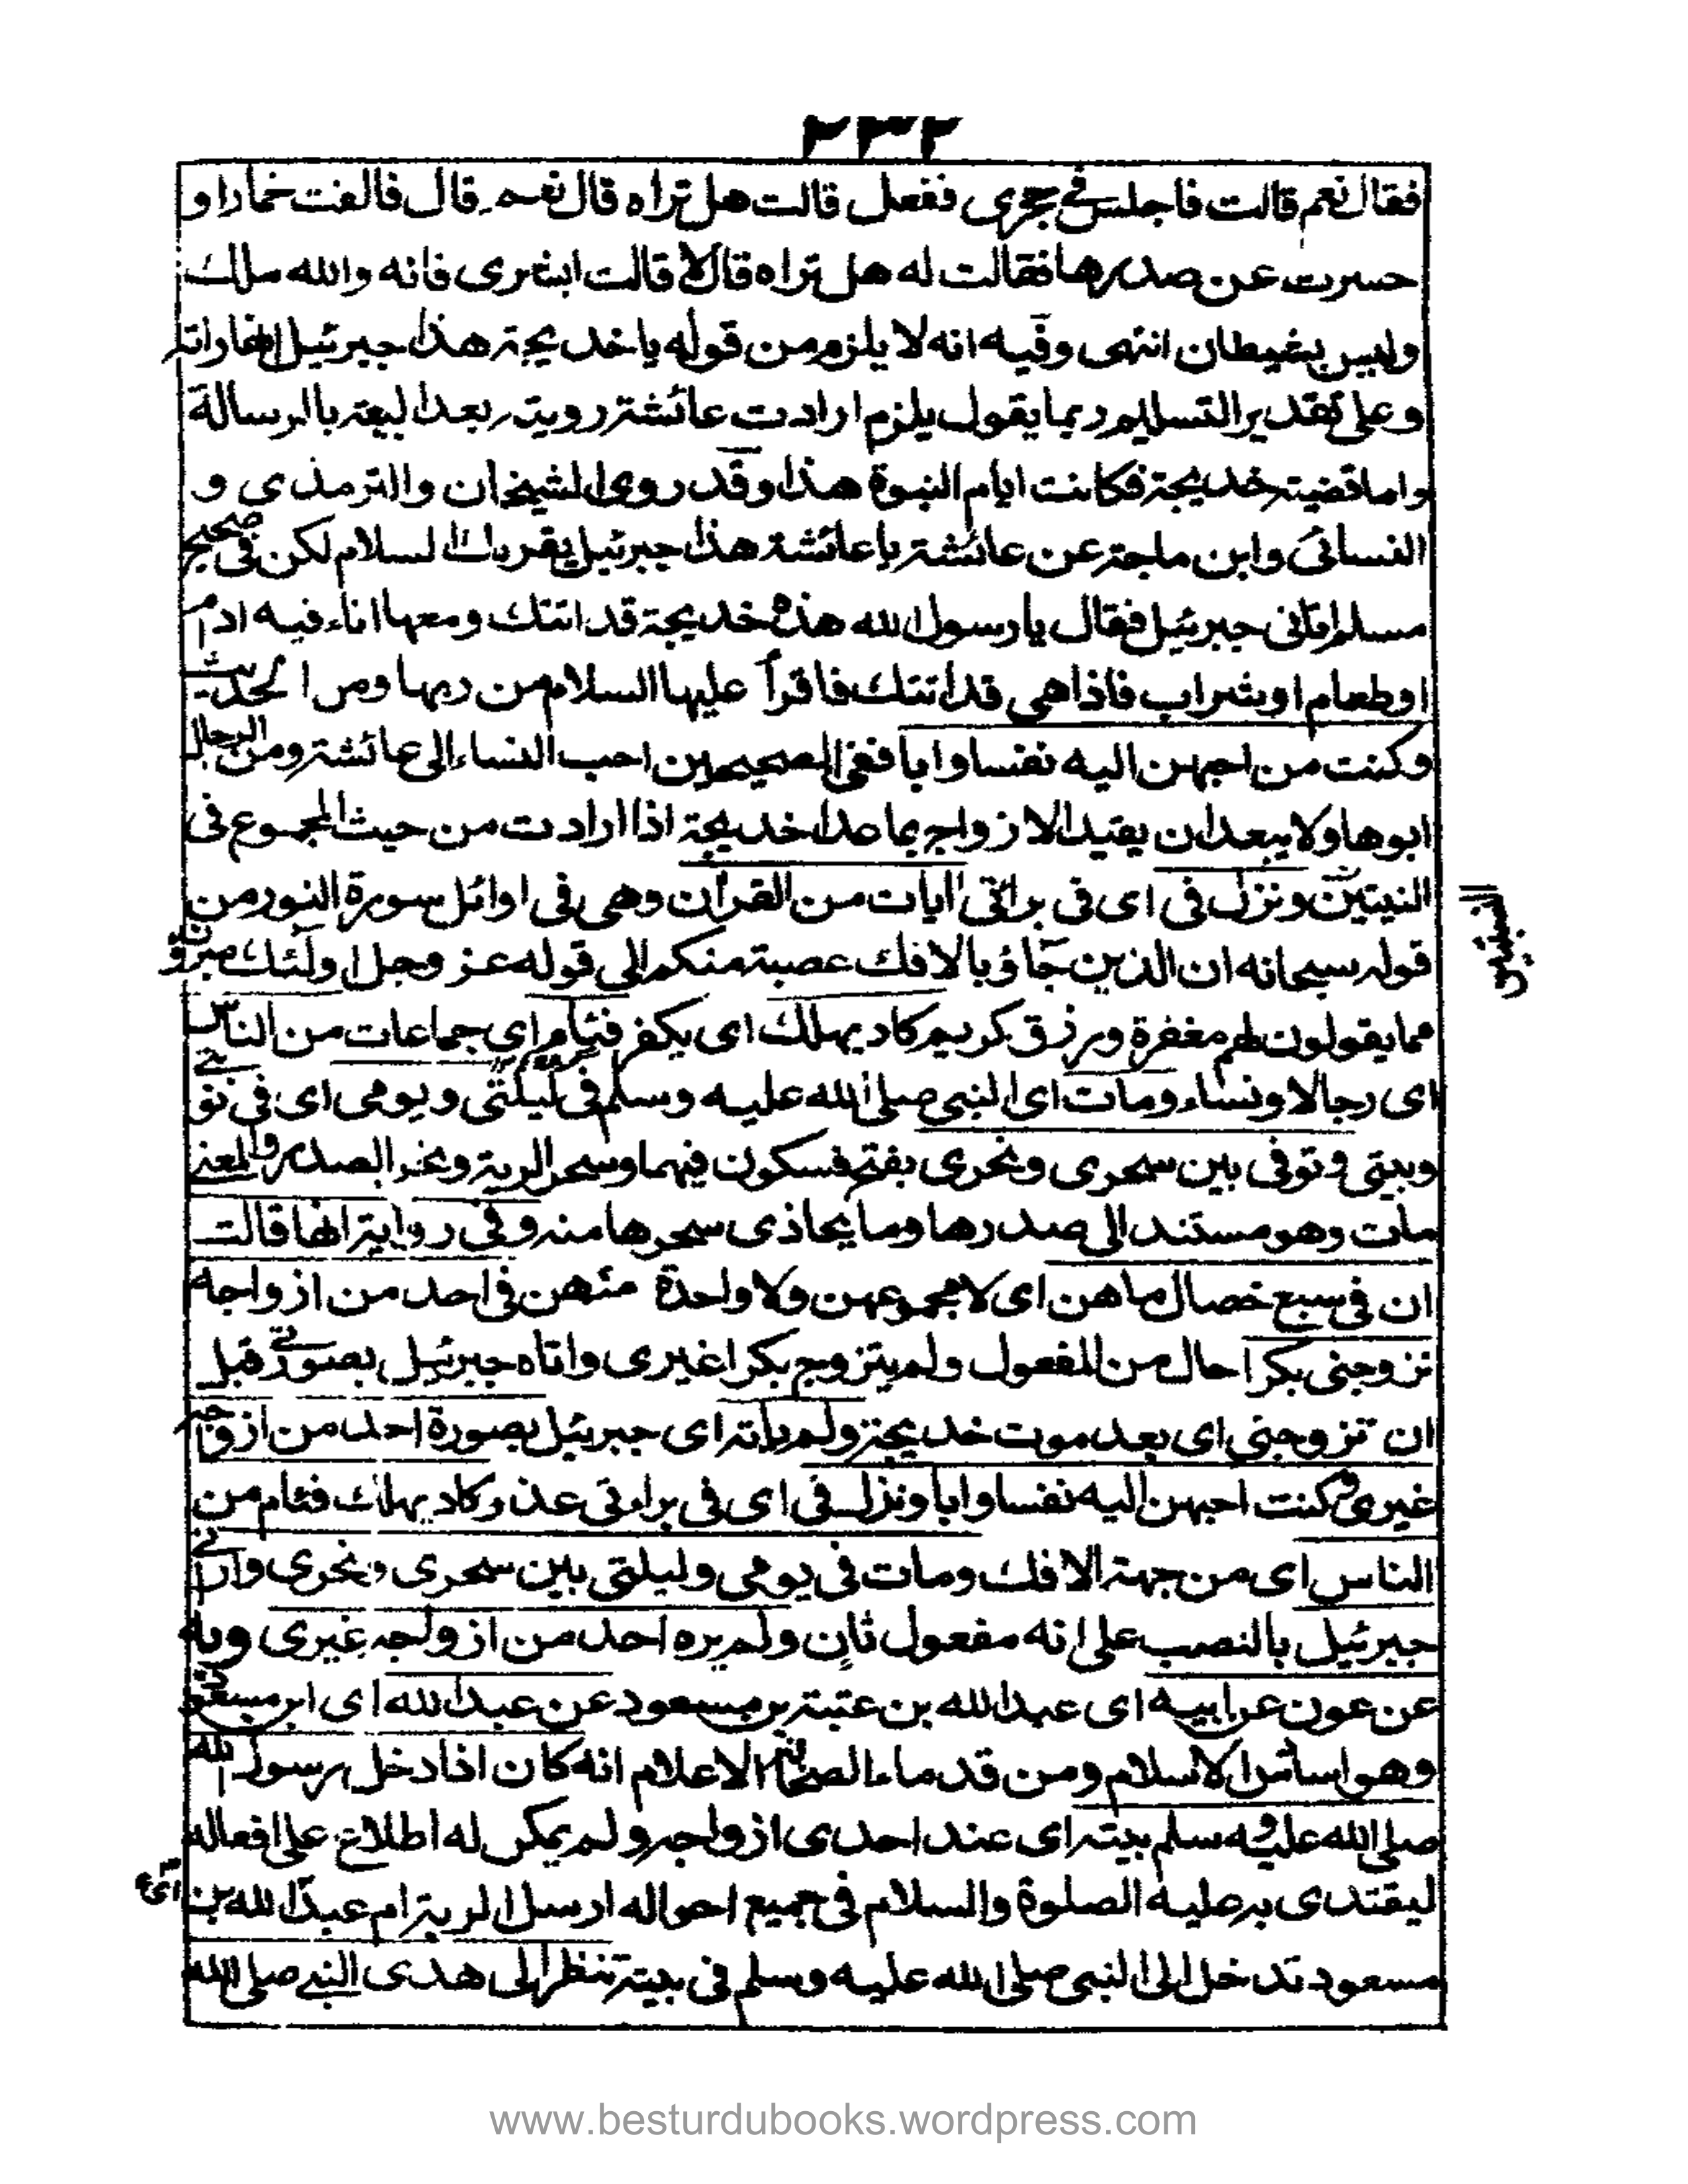 ٢٣٢
فقال نعم قالت فاجلس في حجري ففعل قالت هل تراه قال نعم قال فالقت خمارا و
حسرت عن صدرها فقالت له هل تراه قال لا قالت ابشري فانه والله ملك
وليس بشيطان انتهى وفيه انه لا يلزم من قوله يا خديجة هذا جبرئيل انها راته
وعلى تقدير التسليم ربما يقول يلزم ارادت عائشة رويته بعد البعثة بالرسالة
واما قضية خديجة فكانت ايام النبوة هذا وقد روى الشيخان والترمذي و
النسائي وابن ماجة عن عائشة يا عائشة هذا جبرئيل يقرئك السلام لكن في صحيح
مسلم اتاني جبرئيل فقال يا رسول الله هذه خديجة قد اتتك ومعها اناء فيه ادام
او طعام او شراب فاذا هي قد اتتك فاقرأ عليها السلام من ربها ومن الحديث
وكنت من احبهن اليه نفسا وابا ففي الصحيحين احب النساء الى عائشة ومن الرجال
ابوها ولا يبعد ان يقيد الازواج بما عدا خديجة اذا ارادت من حيث المجموع في
النيتين ونزل في اى في براتي آيات من القرآن وهي في اوائل سورة النور من
قوله سبحانه ان الذين جاؤ بالافك عصبة منكم الى قوله عز وجل اولٰئك مبرؤن
مما يقولون لهم مغفرة ورزق كريم كاد يهلك اى يكفر فئام اى جماعات من الناس
اى رجالا ونساء ومات اى النبي صلى الله عليه وسلم في ليلتي ويومي اى في نوبتي
وبيتي وتوفي بين سحري ونحري بفتح فسكون فيهما وسحر الرية ونحر الصدر والمعنى
مات وهو مستند الى صدرها وما يحاذي سحرها منه وفي رواية انها قالت
ان في سبع خصال ما هن اى لا مجموعهن ولا واحدة منهن في احد من ازواجه
تزوجني بكرا حال من المفعول ولم يتزوج بكرا غيري واتاه جبرئيل بصورتي قبل
ان تزوجني اى بعد موت خديجة ولم ياته اى جبرئيل بصورة احد من ازواجه
غيري وكنت احبهن اليه نفسا وابا ونزل في اى في براءتي عذر كاد يهلك فئام من
الناس اى من جهة الافك ومات في يومي وليلتي بين سحري ونحري واراني
جبرئيل بالنصب على انه مفعول ثان ولم يره احد من ازواجه غيري وبه
عن عون عن ابيه اى عبد الله بن عتبة بن مسعود عن عبد الله اى ابن مسعود
وهو اسا الاسلام ومن قدماء الصحابة الاعلام انه كان اذا دخل رسول الله
صلى الله عليه وسلم بيته اى عند احدى ازواجه ولم يمكن له اطلاع على افعاله
ليقتدي به عليه الصلوة والسلام في جميع احواله ارسل الربة ام عبد الله بن
مسعود تدخل الى النبي صلى الله عليه وسلم في بيته تنظر الى هدي النبي صلى الله
www.besturdubooks.wordpress.com